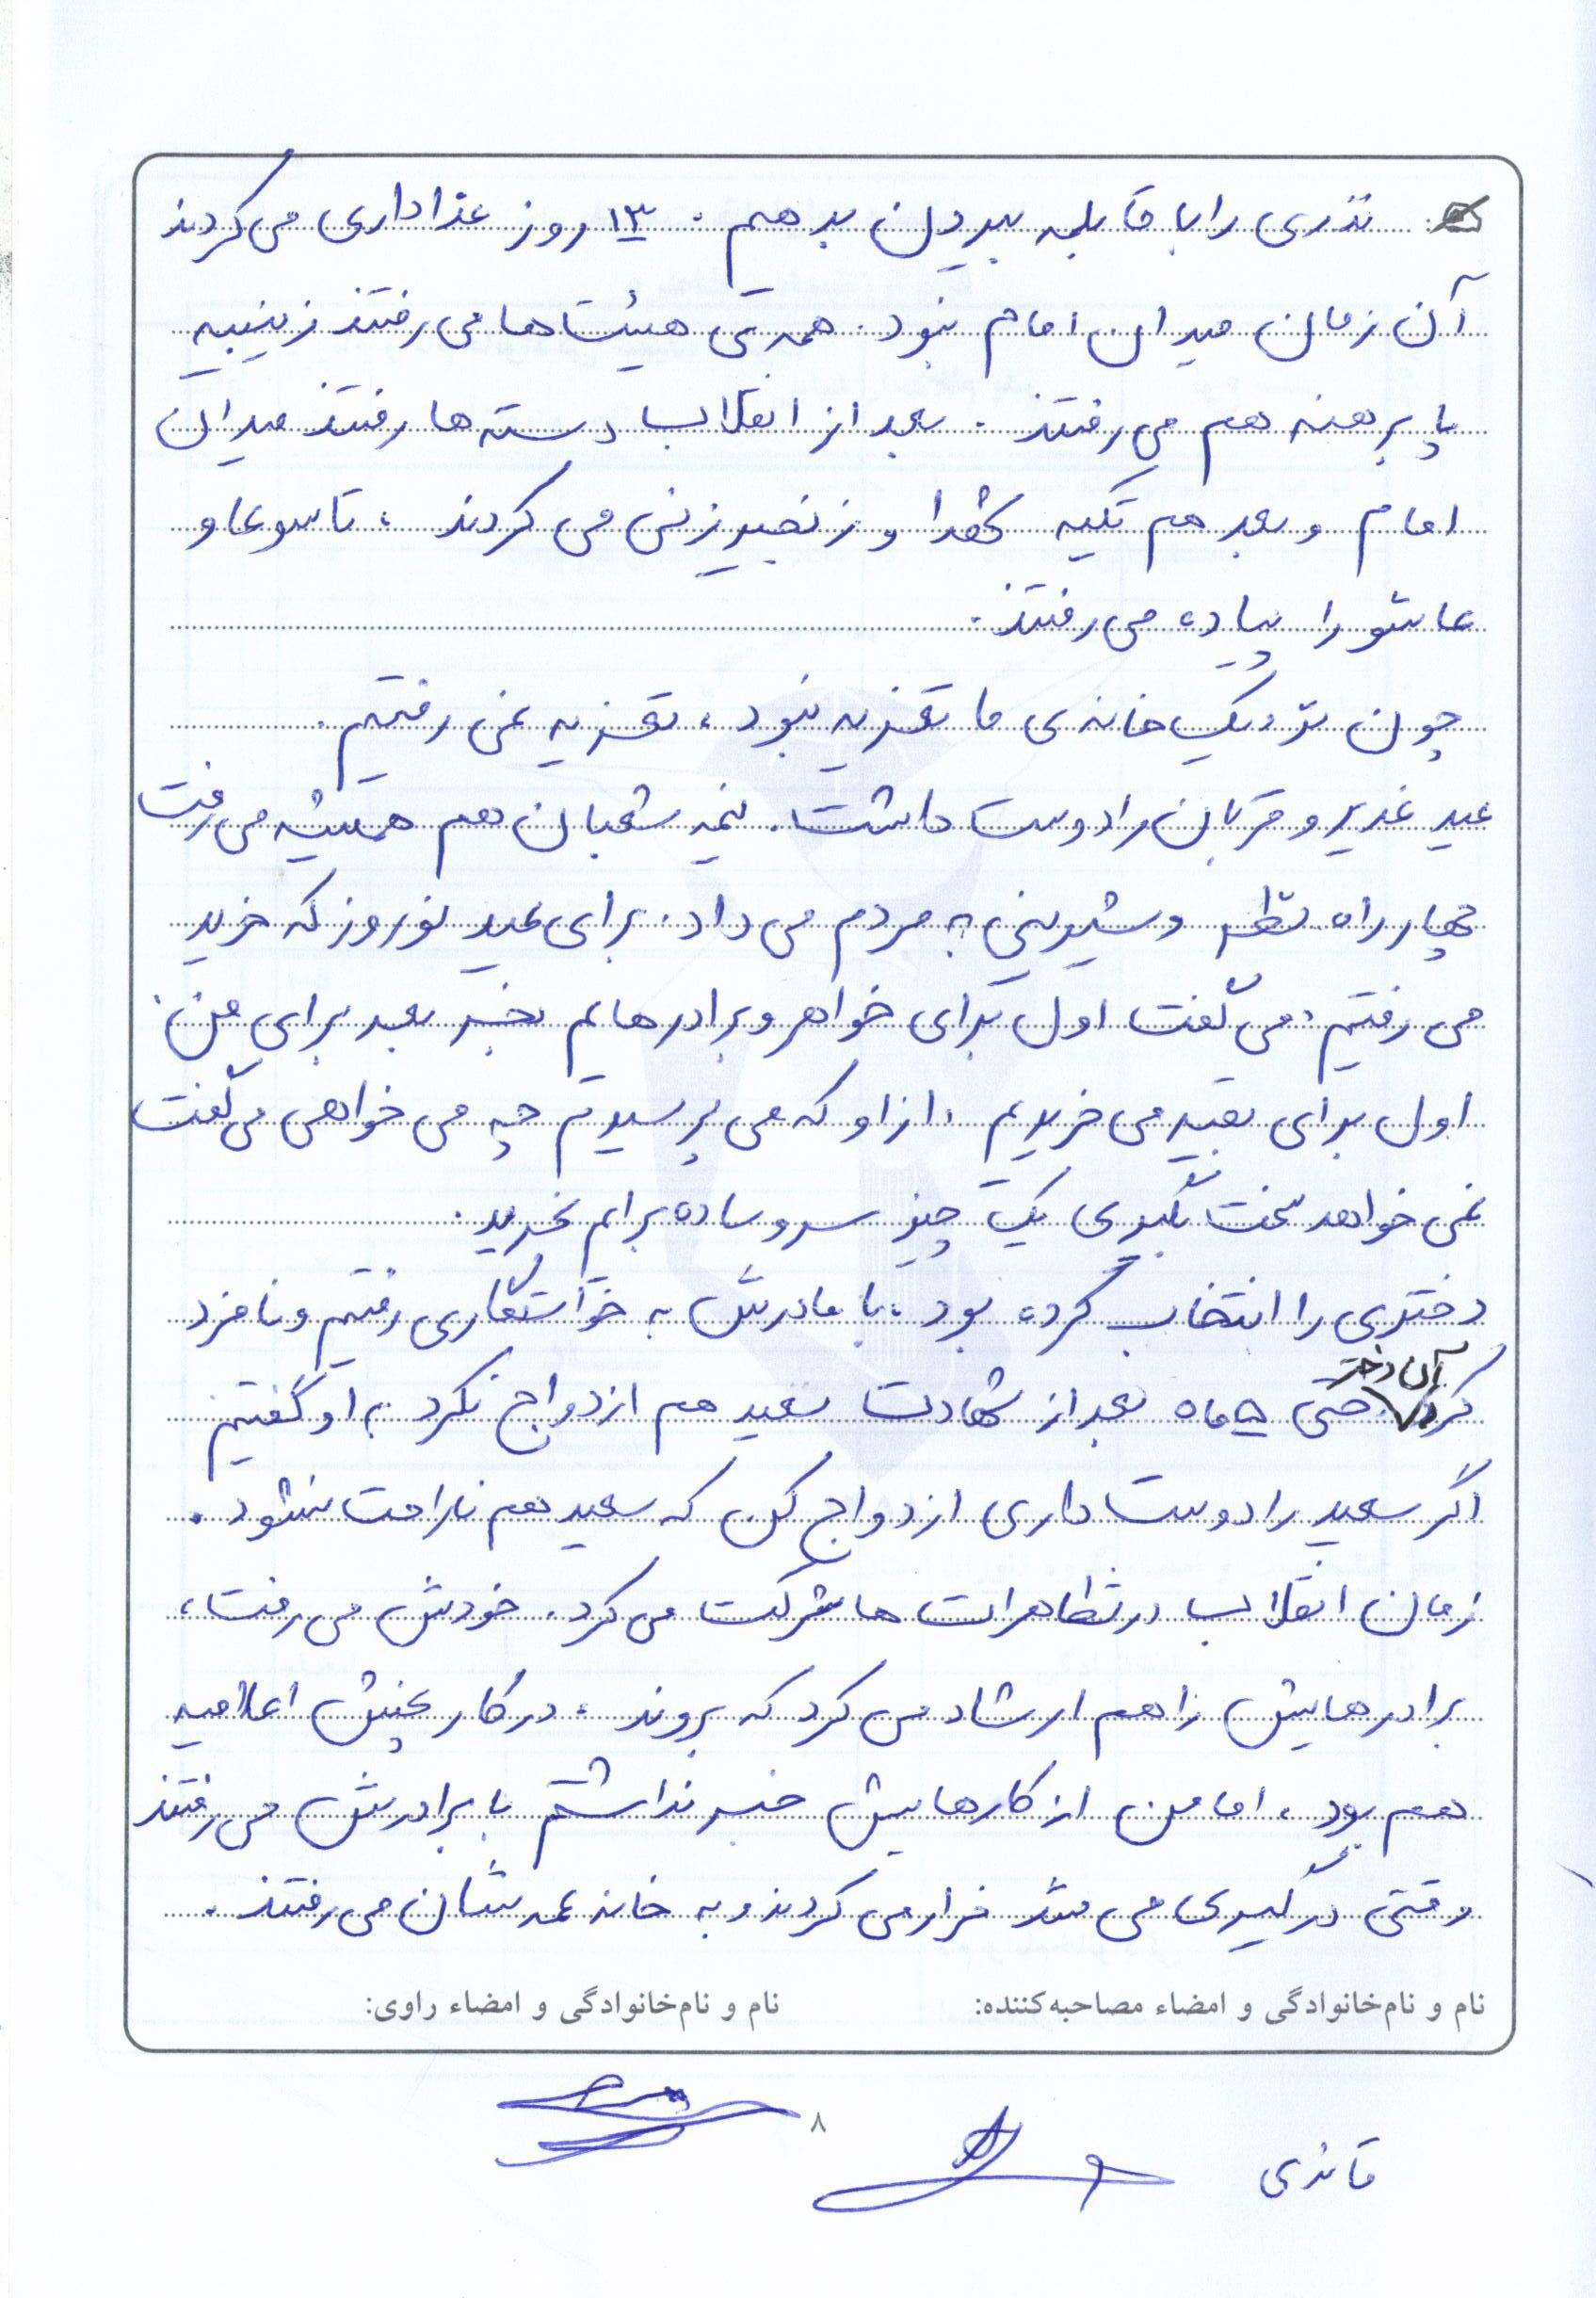 نذری را با قابلمه بیرون بدهیم. ۱۳ روز عذاداری می‌کردند
آن زمان میدان امام نبود. همه‌ی هیئت‌ها می‌رفتند زینبیه
پا برهنه هم می‌رفتند. بعد از انقلاب دسته‌ها رفتند میدان
امام و بعد هم تکیه و زنجیرزنی می‌کردند، تاسوعا و
عاشورا پیاده می‌رفتند.
چون نزدیک خانه‌ی ما تعزیه نبود، تعزیه نمی‌رفتیم.
عید غدیر و قربان را دوست داشت. نیمه شعبان هم همیشه می‌رفت
چهارراه و شیرینی به مردم می‌داد. برای عید نوروز که خرید
می‌رفتیم، می‌گفت اول برای خواهر و برادرهایم بخر بعد برای من.
اول برای بقیه می‌خریدیم، از او که می‌پرسیدم چه می‌خواهی می‌گفت
نمی‌خواهد سخت بگیری یک چیز سر و ساده برایم بخرید.
دختری را انتخاب کرده بود، با مادرش به خواستگاری رفتیم و نامزد
کرد. آن دختر حتی ۵ ماه بعد از شهادت سعید هم ازدواج نکرد به او گفتیم
اگر سعید را دوست داری ازدواج کن که سعید هم ناراحت نشود.
زمان انقلاب در تظاهرات‌ها شرکت می‌کرد. خودش می‌رفت،
برادرهایش را هم ارشاد می‌کرد که بروند، در کار پخش اعلامیه
هم بود، اما من از کارهایش خبر نداشتم با برادرش می‌رفتند
وقتی درگیری می‌شد فرار می‌کردند و به خانه عمه‌شان می‌رفتند.
نام و نام‌خانوادگی و امضاء مصاحبه‌کننده: نام و نام‌خانوادگی و امضاء راوی:
۸